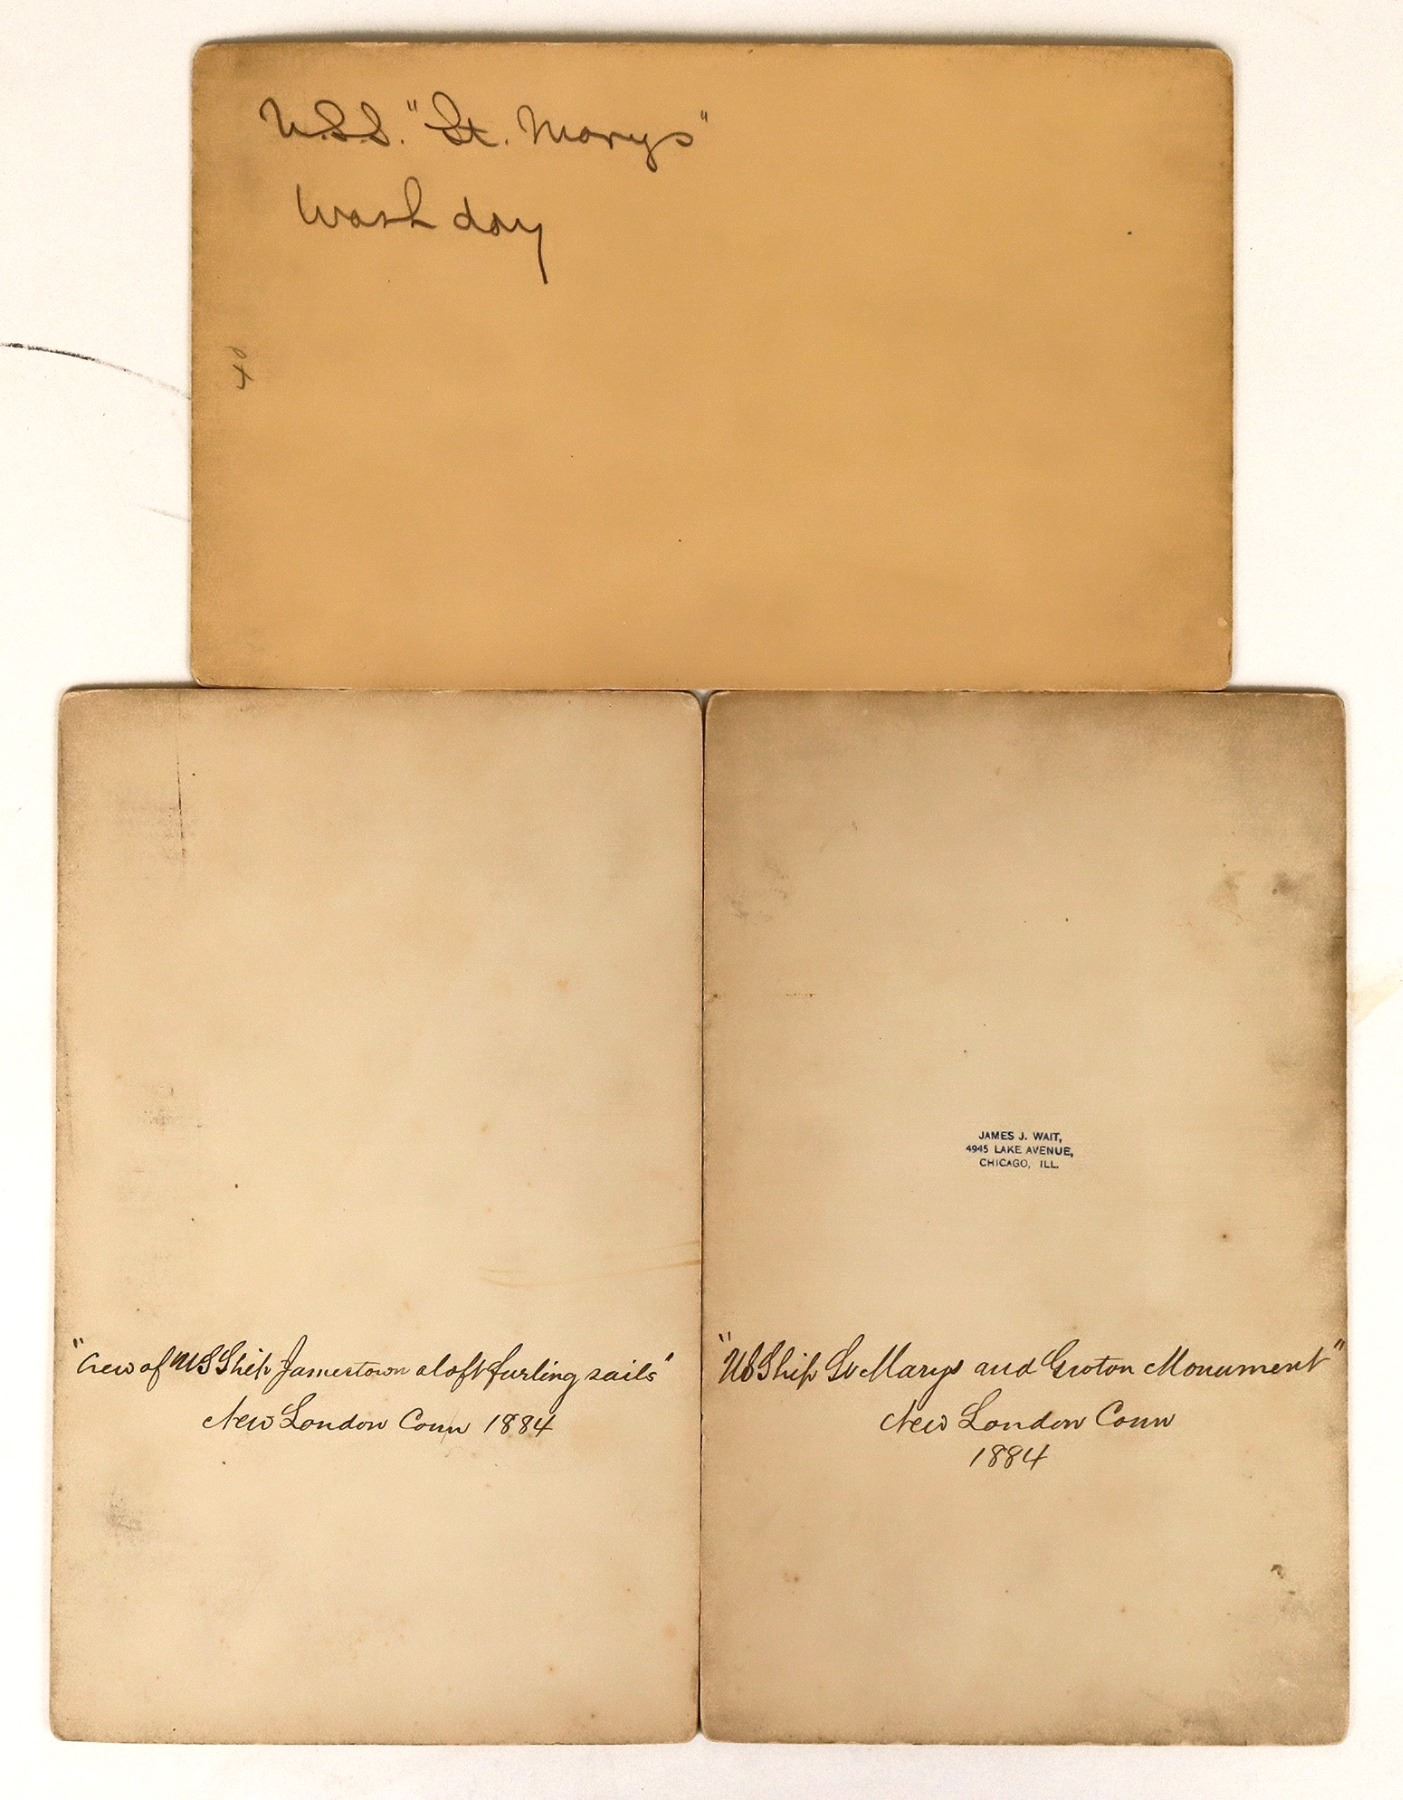 U.S.S. "St. Marys"
Wash day
"Crew of US Ship Jamestown aloft furling sails"
New London Conn 1884
JAMES J. WAIT,
4945 LAKE AVENUE,
CHICAGO, ILL.
"US Ship St Marys and Groton Monument"
New London Conn
1884